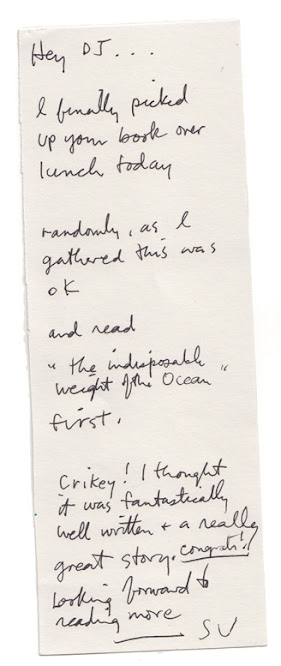 Hey DJ...
I finally picked
up your book over
lunch today
randomly, as I
gathered this was
OK
and read
"the indisposable
weight of the Ocean"
first.
Crikey! I thought
it was fantastically
well written + a really
great story. congrats!!
Looking forward to
reading more
SV